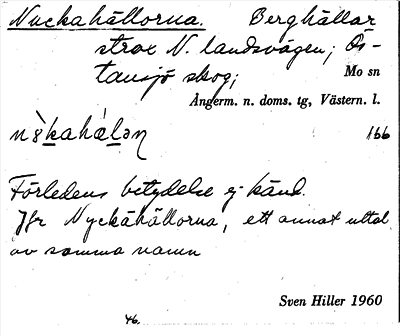 Nuckahällorna. Berghällar
strax N. landsvägen; Ös-
tansjö skog; Mo sn
Ångerm. n. doms. tg, Västern. l.
166
Förledens betydelse ej känd.
Jfr Nyckähällorna, ett annat uttal
av samma namn
Sven Hiller 1960
46.